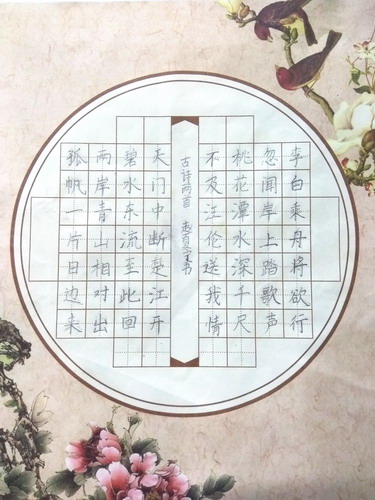 李白乘舟将欲行
忽闻岸上踏歌声
桃花潭水深千尺
不及汪伦送我情
古诗两首
天门中断楚江开
碧水东流至此回
两岸青山相对出
孤帆一片日边来